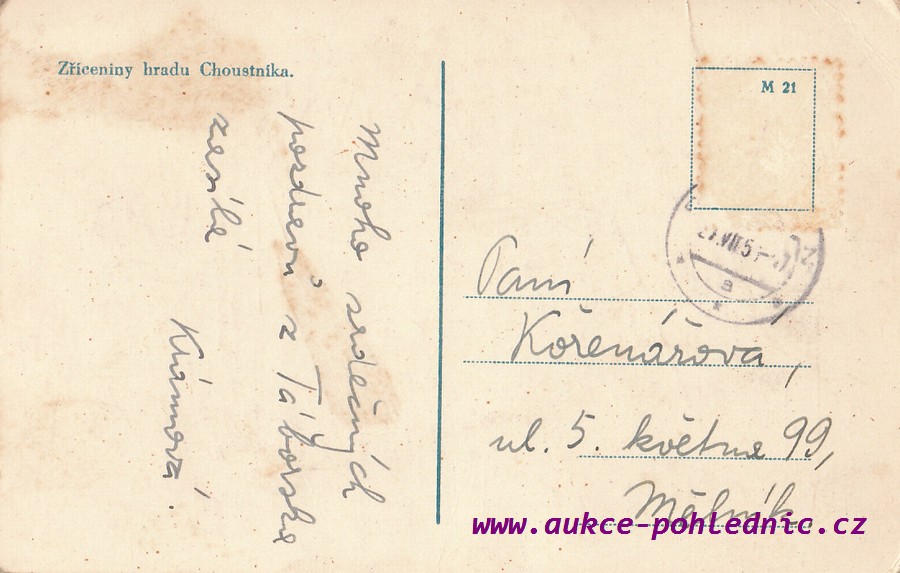 Zříceniny hradu Choustníka.
M 21
Mnoho srdečných
pozdravů z Táborska
zasílá
Klámová.
27.VII.5
a
Paní
Kořenářová,
ul. 5. května 99,
Mělník
www.aukce-pohlednic.cz